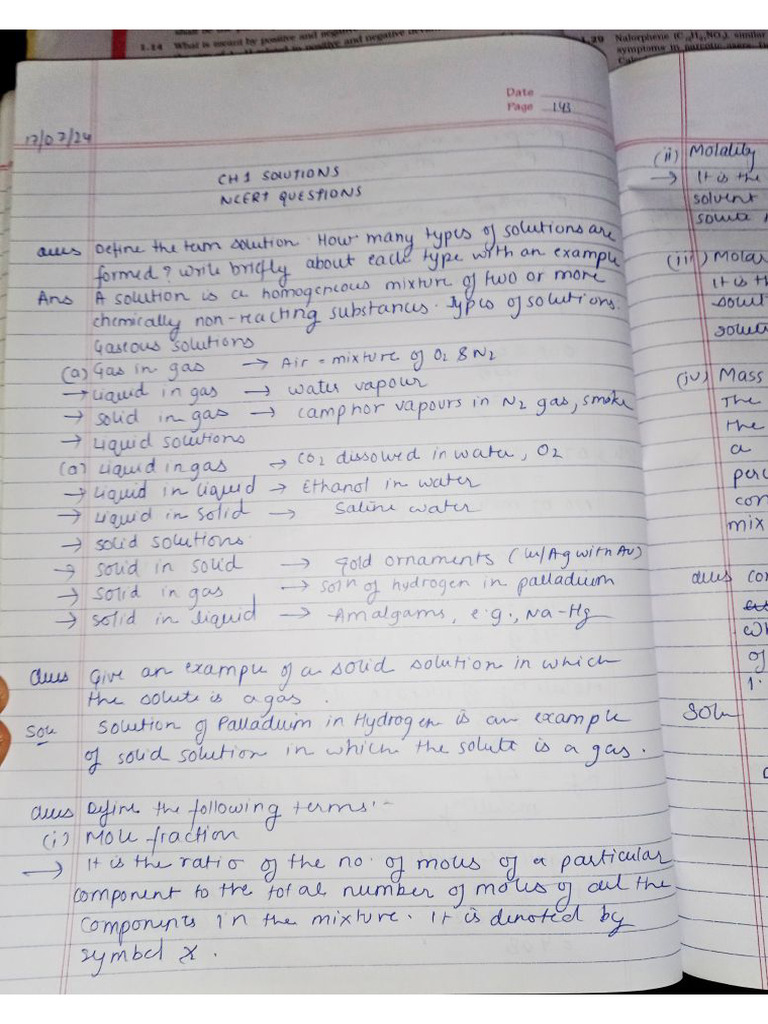 1.14 What is meant by positive and
Nalorphene (C H NO ), similar
symptoms in narcotic users.
Date
Page 143
17/07/24
CH 1 SOLUTIONS
NCERT QUESTIONS
Ques Define the term solution. How many types of solutions are
formed? Write briefly about each type with an example
Ans A solution is a homogeneous mixture of two or more
chemically non-reacting substances. Types of solutions.
Gaseous solutions
(a) Gas in gas → Air = mixture of O2 & N2
→ Liquid in gas → water vapour
→ Solid in gas → camphor vapours in N2 gas, smoke
→ Liquid solutions
(a) Liquid in gas → CO2 dissolved in water, O2
→ Liquid in liquid → Ethanol in water
→ Liquid in solid → Saline water
→ Solid solutions
→ Solid in solid → gold ornaments (Cu/Ag with Au)
→ Solid in gas → soln of hydrogen in palladium
→ Solid in liquid → Amalgams, e.g., Na-Hg
Ques Give an example of a solid solution in which
the solute is a gas.
Soln Solution of Palladium in Hydrogen is an example
of solid solution in which the solute is a gas.
Ques Define the following terms:-
(i) Mole fraction
→ It is the ratio of the no. of moles of a particular
component to the total number of moles of all the
components in the mixture. It is denoted by
symbol x.
(ii) Molality
→ It is the
solvent
solute
(iii) Molar
It is th
solut
solutio
(iv) Mass
The
the
a
perc
con
mix
Ques Con
wh
of
1.
Soln